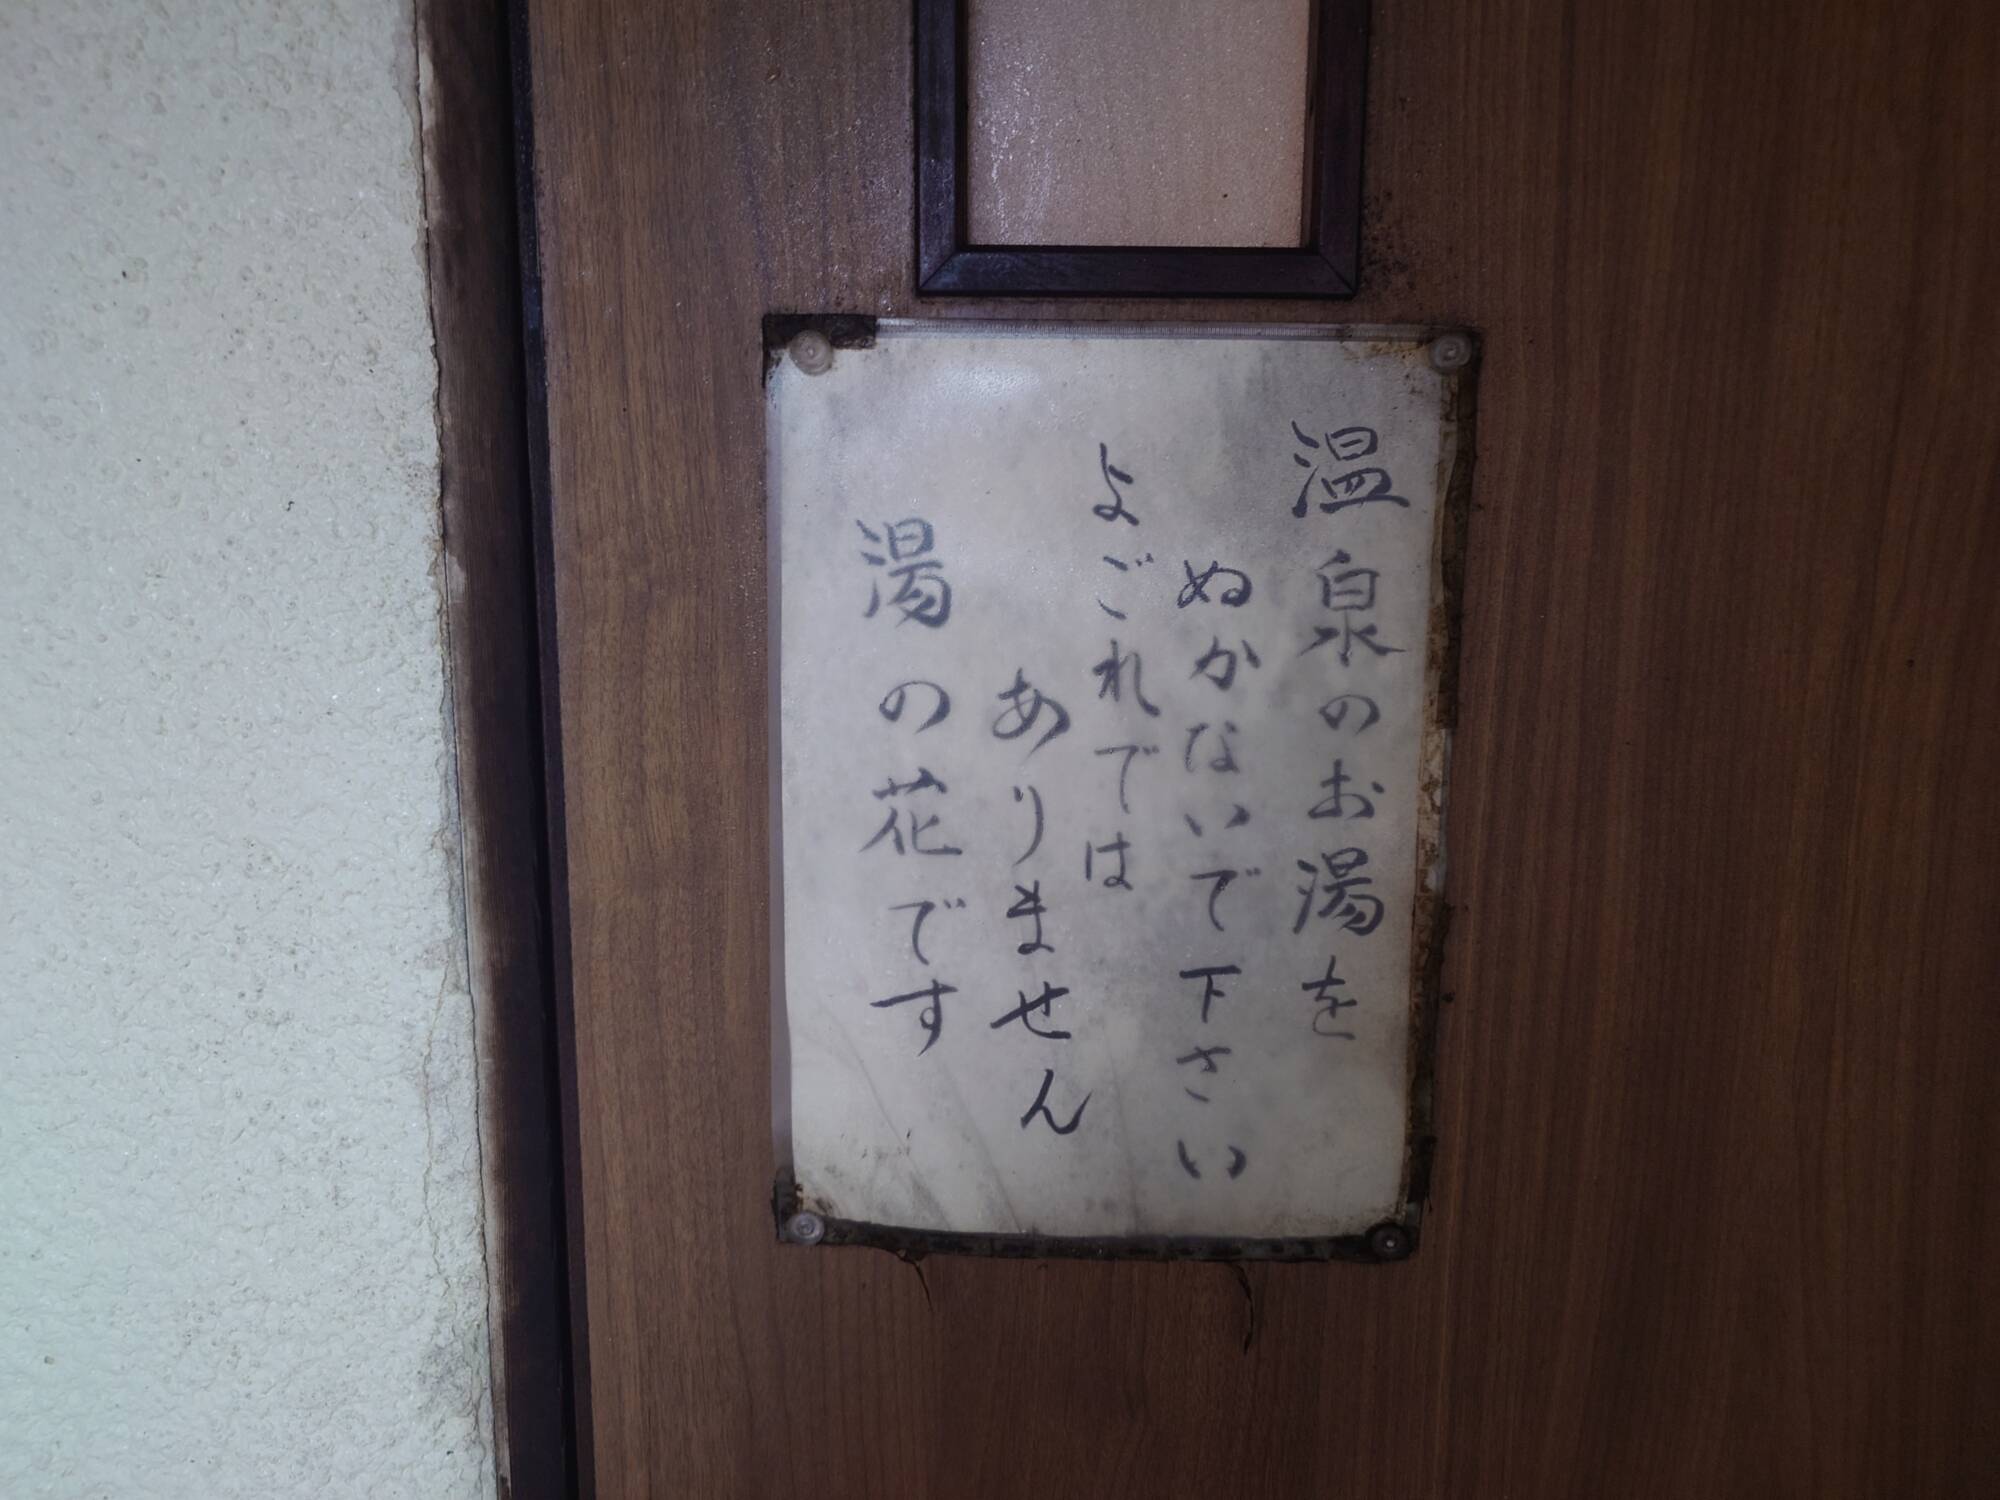 温泉のお湯を
ぬかないで下さい
よごれでは
ありません
湯の花です